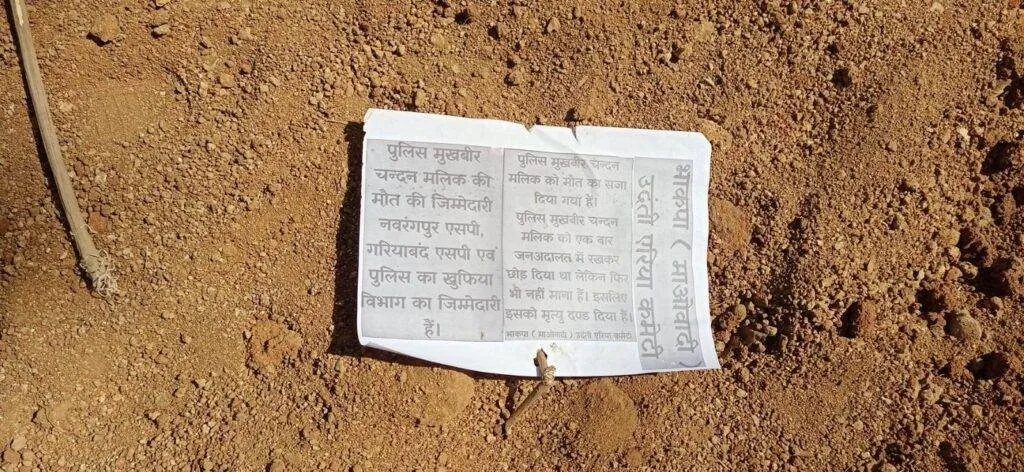 पुलिस मुखबीर
चन्दन मलिक की
मौत की जिम्मेदारी
नवरंगपुर एसपी,
गरियाबंद एसपी एवं
पुलिस का खुफिया
विभाग का जिम्मेदारी
हैं।
पुलिस मुखबीर चन्दन
मलिक को मौत का सजा
दिया गया हैं।
पुलिस मुखबीर चन्दन
मलिक को एक बार
जनअदालत में रखकर
छोड़ दिया था लेकिन फिर
भी नहीं माना हैं। इसलिए
इसको मृत्यु दण्ड दिया हैं।
भाकपा ( माओवादी ) उदंती एरिया कमेटी
भाकपा ( माओवादी )
उदंती एरिया कमेटी